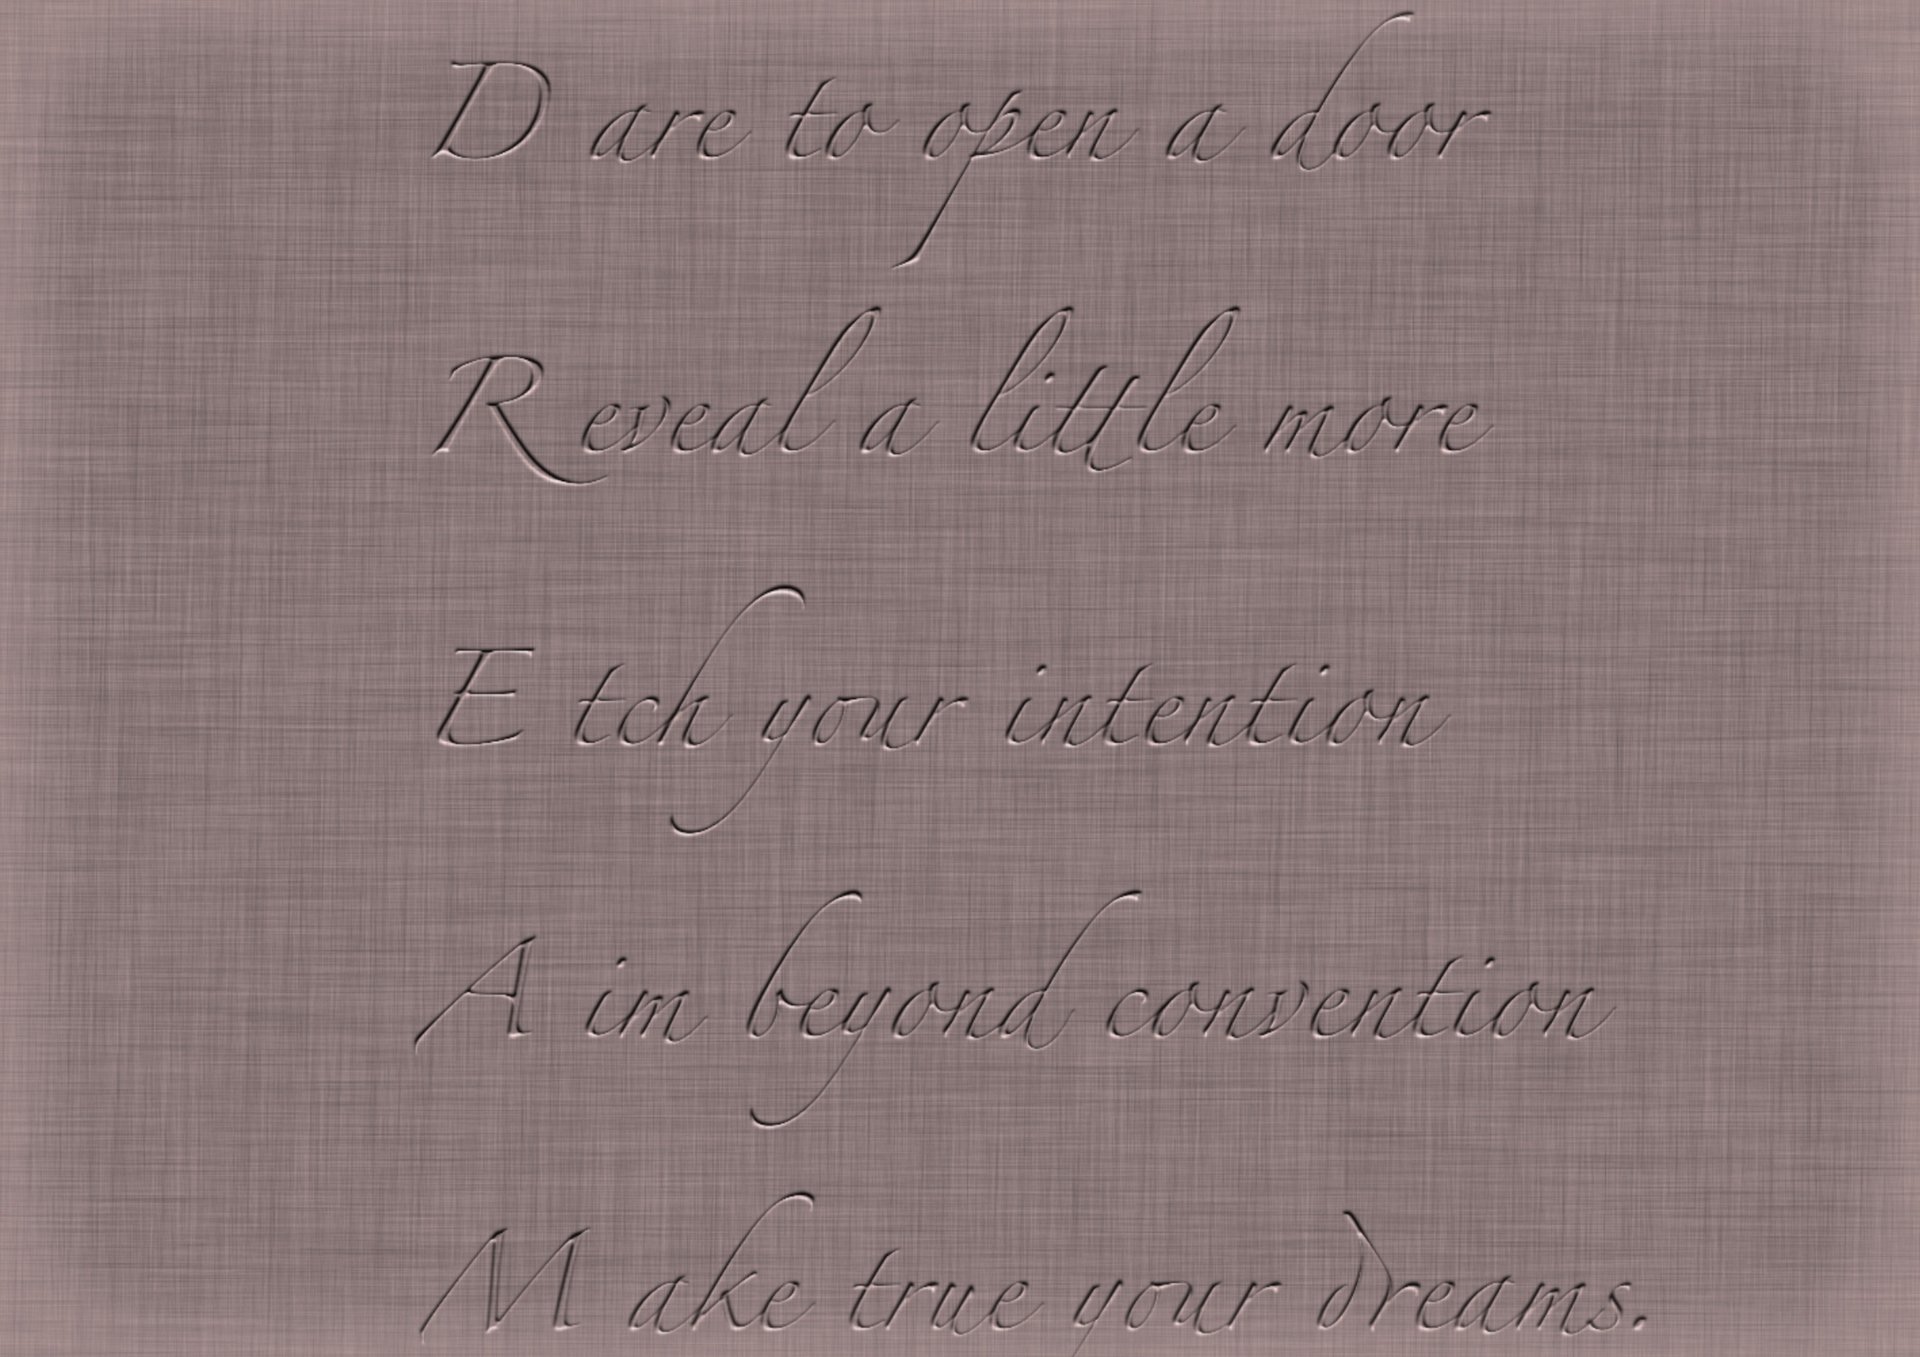 Dare to open a door
Reveal a little more
Etch your intention
Aim beyond convention
Make true your dreams.